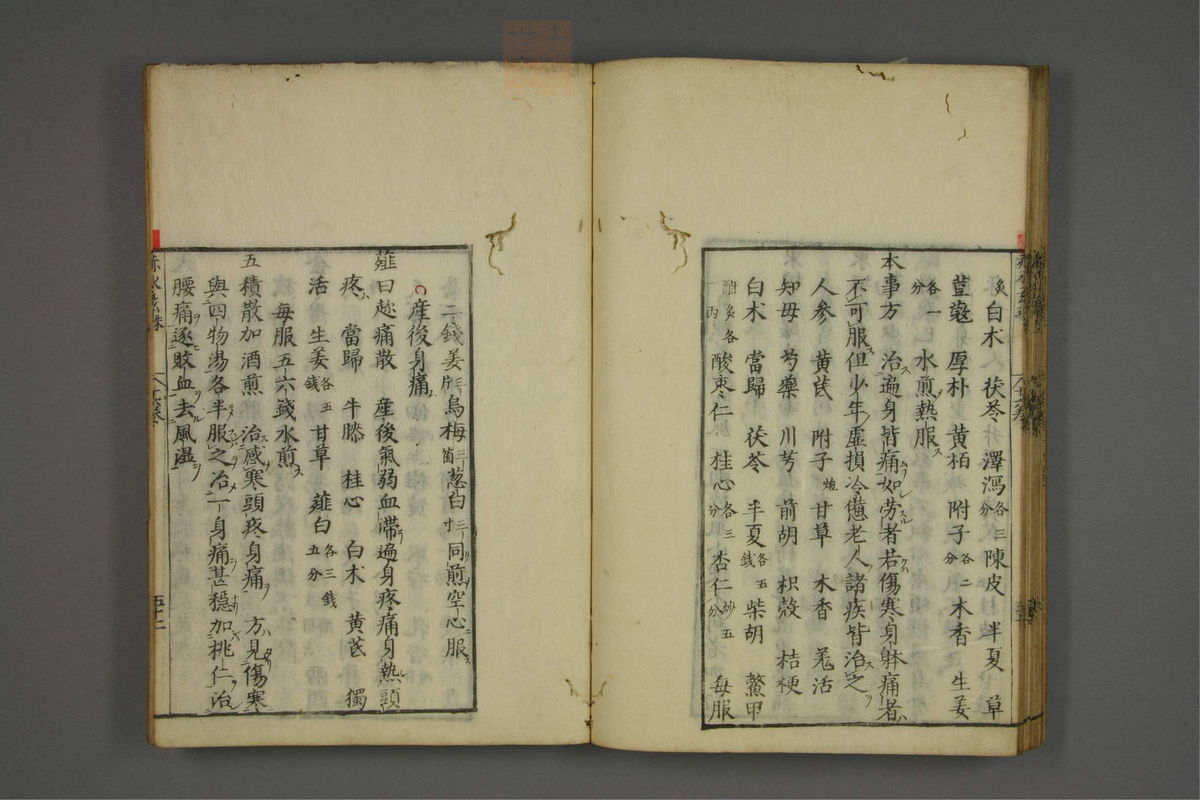 炙白朮　茯苓　澤瀉各三分陳皮　半夏　草
荳蔲　厚朴　黄栢　附子各二分木香　生姜
各一分　水煎熱服ス
本事方　治ス遍身皆痛如労スル者若傷寒身躰痛者ハ
不可服ス但少年虚損冷憊老人諸疾皆治之
人参　黄芪　附子炮甘草　木香　羗活
知母　芍藥　川芎　前胡　枳殻　桔梗
白朮　當歸　茯苓　半夏各五錢柴胡　鱉甲
醋炙各一両　酸枣仁　桂心各三分杏仁炒五分　毎服
二錢姜三片烏梅三箇葱白三寸同煎空心服ス
産後身痛
薤曰趂痛散　産後氣弱血滞遍身疼痛身熱頭
疼ム　當歸　牛膝　桂心　白朮　黄芪　獨
活　生姜各五錢甘草　薤白各三錢五分
毎服五六錢水煎ス
五積散加酒煎　治感寒頭疼身痛ヲ　方見傷寒
與四物湯各半服之治一身痛甚穏加桃仁治
腰痛逐敗血去風湿ヲ
赤水玄珠
五十二